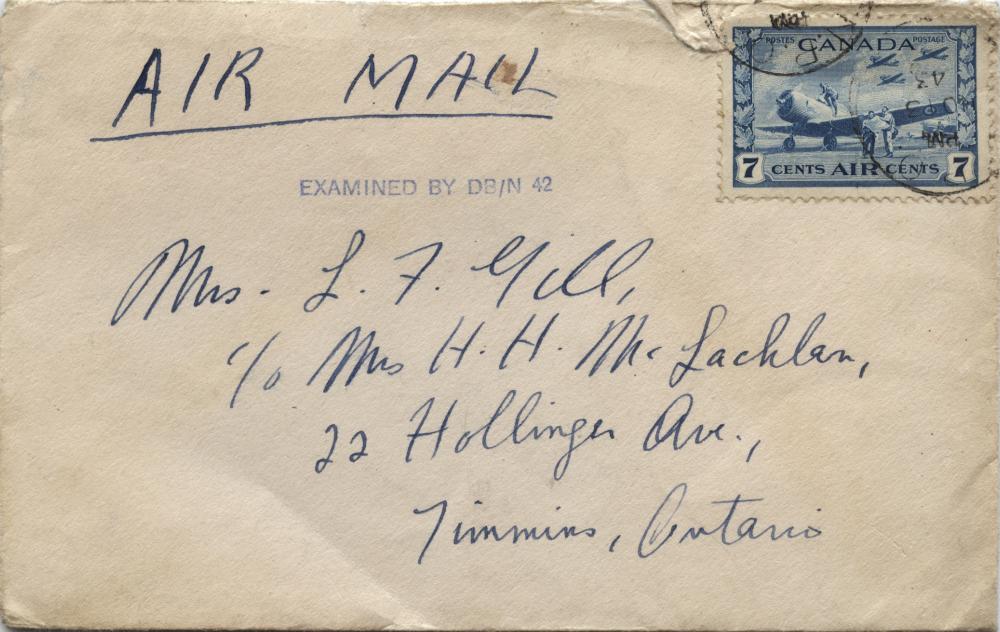 AIR MAIL
POSTES CANADA POSTAGE
7 CENTS AIR CENTS 7
EXAMINED BY DB/N 42
Mrs. L. F. Gill,
c/o Mrs H. H. McLachlan,
22 Hollinger Ave.,
Timmins, Ontario